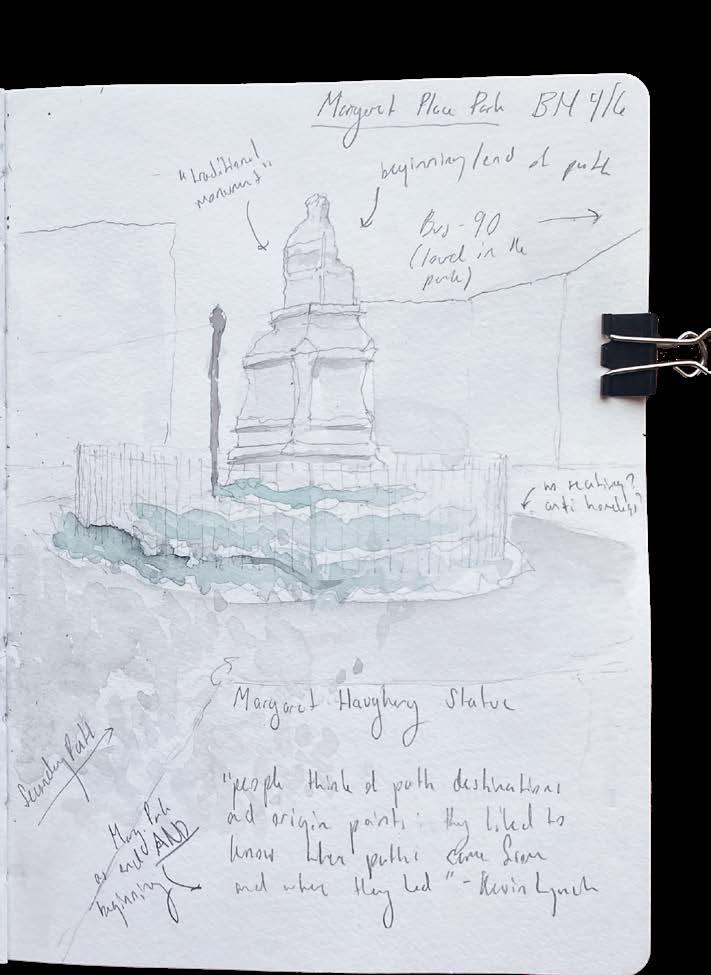 Margaret Place Park BM 4/6
"traditional
monument"
beginning/end of path
Bus - 90
(loud in the
park)
no seating?
anti homeless?
Margaret Haughery Statue
Secondary Path
Marg. Park
as end AND
beginning
"people think of path destinations
and origin points: they liked to
know where paths came from
and where they led" - Kevin Lynch